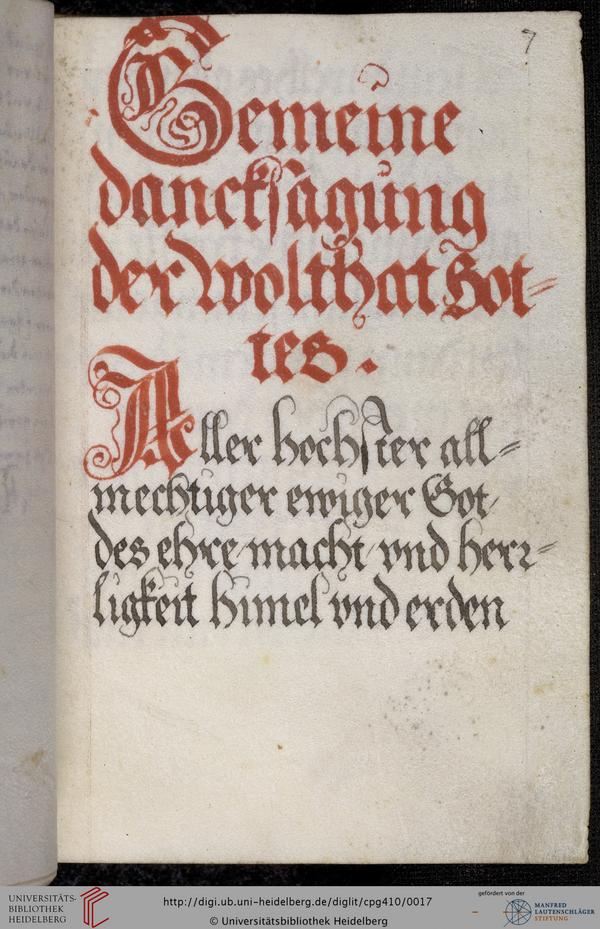 7
Gemeine
dancksagung
der wolthat Got-
tes.
Aller hochster all-
mechtiger ewiger Got,
des ehre, macht, vnd herr-
ligkeit himel vnd erden
UNIVERSITÄTS-
BIBLIOTHEK
HEIDELBERG
http://digi.ub.uni-heidelberg.de/diglit/cpg410/0017
© Universitätsbibliothek Heidelberg
gefördert von der
MANFRED
LAUTENSCHLÄGER
STIFTUNG